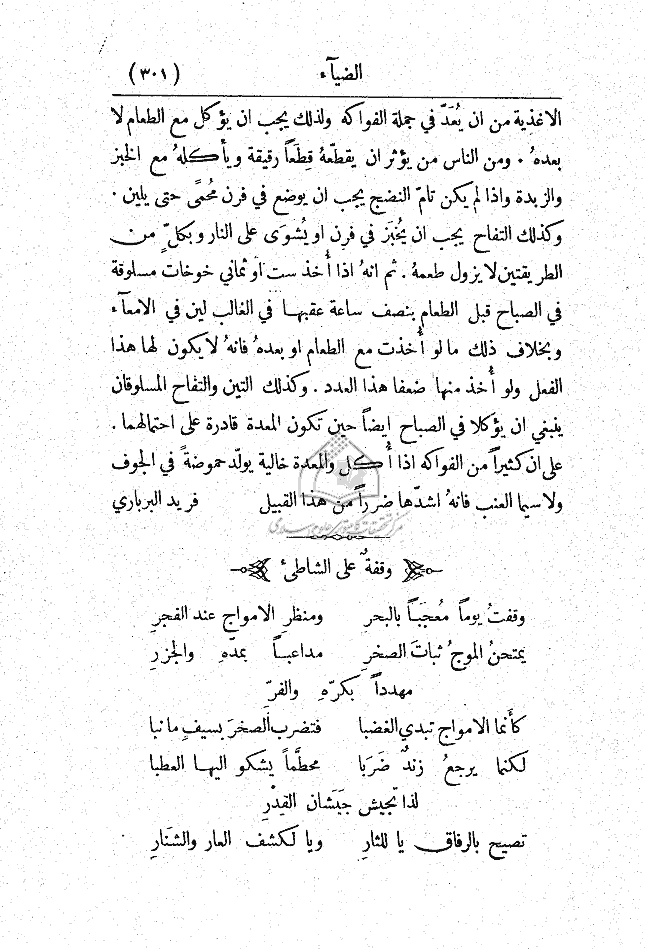 الضيآء (٣٠١)
الاغذية من ان يُعَدّ في جملة الفواكه ولذلك يجب ان يؤكل مع الطعام لا
بعدهُ ٠ ومن الناس من يؤثر ان يقطّعهُ قِطَعاً رقيقة ويأكلهُ مع الخبز
والزبدة واذا لم يكن تامّ النضج يجب ان يوضع في فرن مُحمًى حتى يلين ٠
وكذلك التفاح يجب ان يُخبَز في فرن او يُشوَى على النار وبكلٍّ من
الطريقتين لا يزول طعمهُ ٠ ثم انهُ اذا أُخذ ست او ثماني خوخات مسلوقة
في الصباح قبل الطعام بنصف ساعة عقبها في الغالب لين في الامعآء
وبخلاف ذلك ما لو أُخذت مع الطعام او بعدهُ فانهُ لا يكون لها هذا
الفعل ولو أُخذ منها ضعفا هذا العدد ٠ وكذلك التين والتفاح المسلوقان
ينبغي ان يؤكلا في الصباح ايضاً حين تكون المعدة قادرة على احتمالهما ٠
على ان كثيراً من الفواكه اذا أُكل والمعدة خالية يولّد حموضةً في الجوف
ولا سيما العنب فانهُ اشدّها ضرراً من هذا القبيل فريد البرباري
وقفةٌ على الشاطئ
وقفتُ يوماً مُعجَباً بالبحرِ ومنظرِ الامواج عند الفجرِ
يمتحنُ الموجُ ثباتَ الصخرِ مداعباً بمدّهِ والجزرِ
مهدداً بكرّهِ والفرِّ
كأنما الامواج تبدي الغضبا فتضرب الصخرَ بسيفٍ ما نبا
لكنما يرجعُ زندٌ ضَرَبا محطَّماً يشكو اليها العطبا
لذا تجيش جَيَشان القِدْرِ
تصيح بالرفاق يا للثارِ ويا لكشف العار والشَنارِ